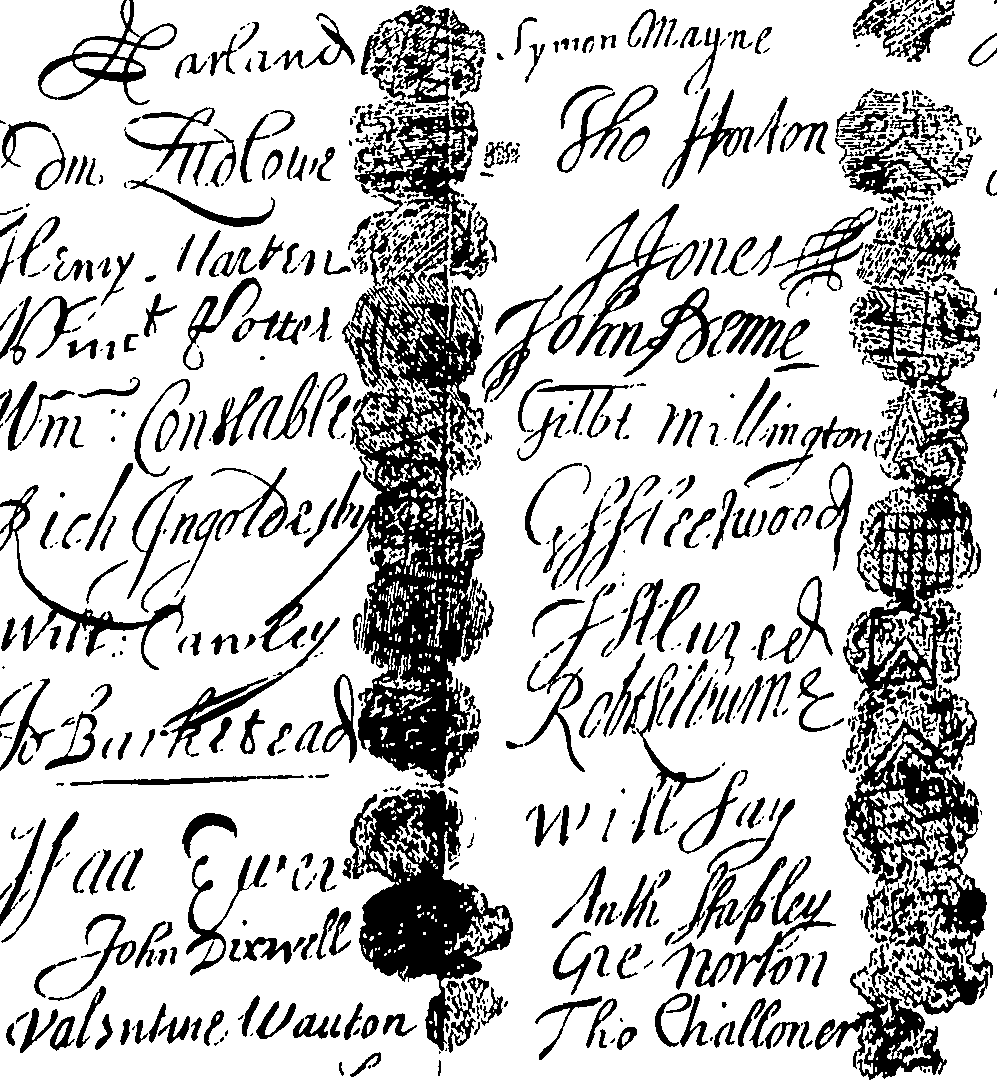 Harland
Edm. Ludlowe
Henry. Marten
Vinct Potter
Wm: Constable
Rich Ingoldesby
Will: Cawley
Jo Barkstead
Isaa Ewer
John Dixwell
Valentine Wauton
Symon Mayne
Tho Horton
J Jones
John Penne
Gilbt Millington
G Fleetwood
J Alured
Robt Lilburne
Will Say
Anth Stapley
Gre Norton
Tho Challoner